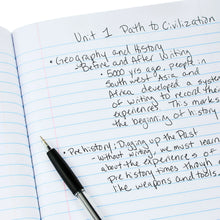 Unit 1 Path to Civilization
• Geography and History
- Before and After Writing
• 5000 yrs ago, people in
South west Asia and
Africa developed a system
of writing to record their
experiences. This marks
the beginning of history
• Prehistory: Digging up the Past
- Without writing, we must learn
about the experiences of
Pre history times through
like weapons and tools.